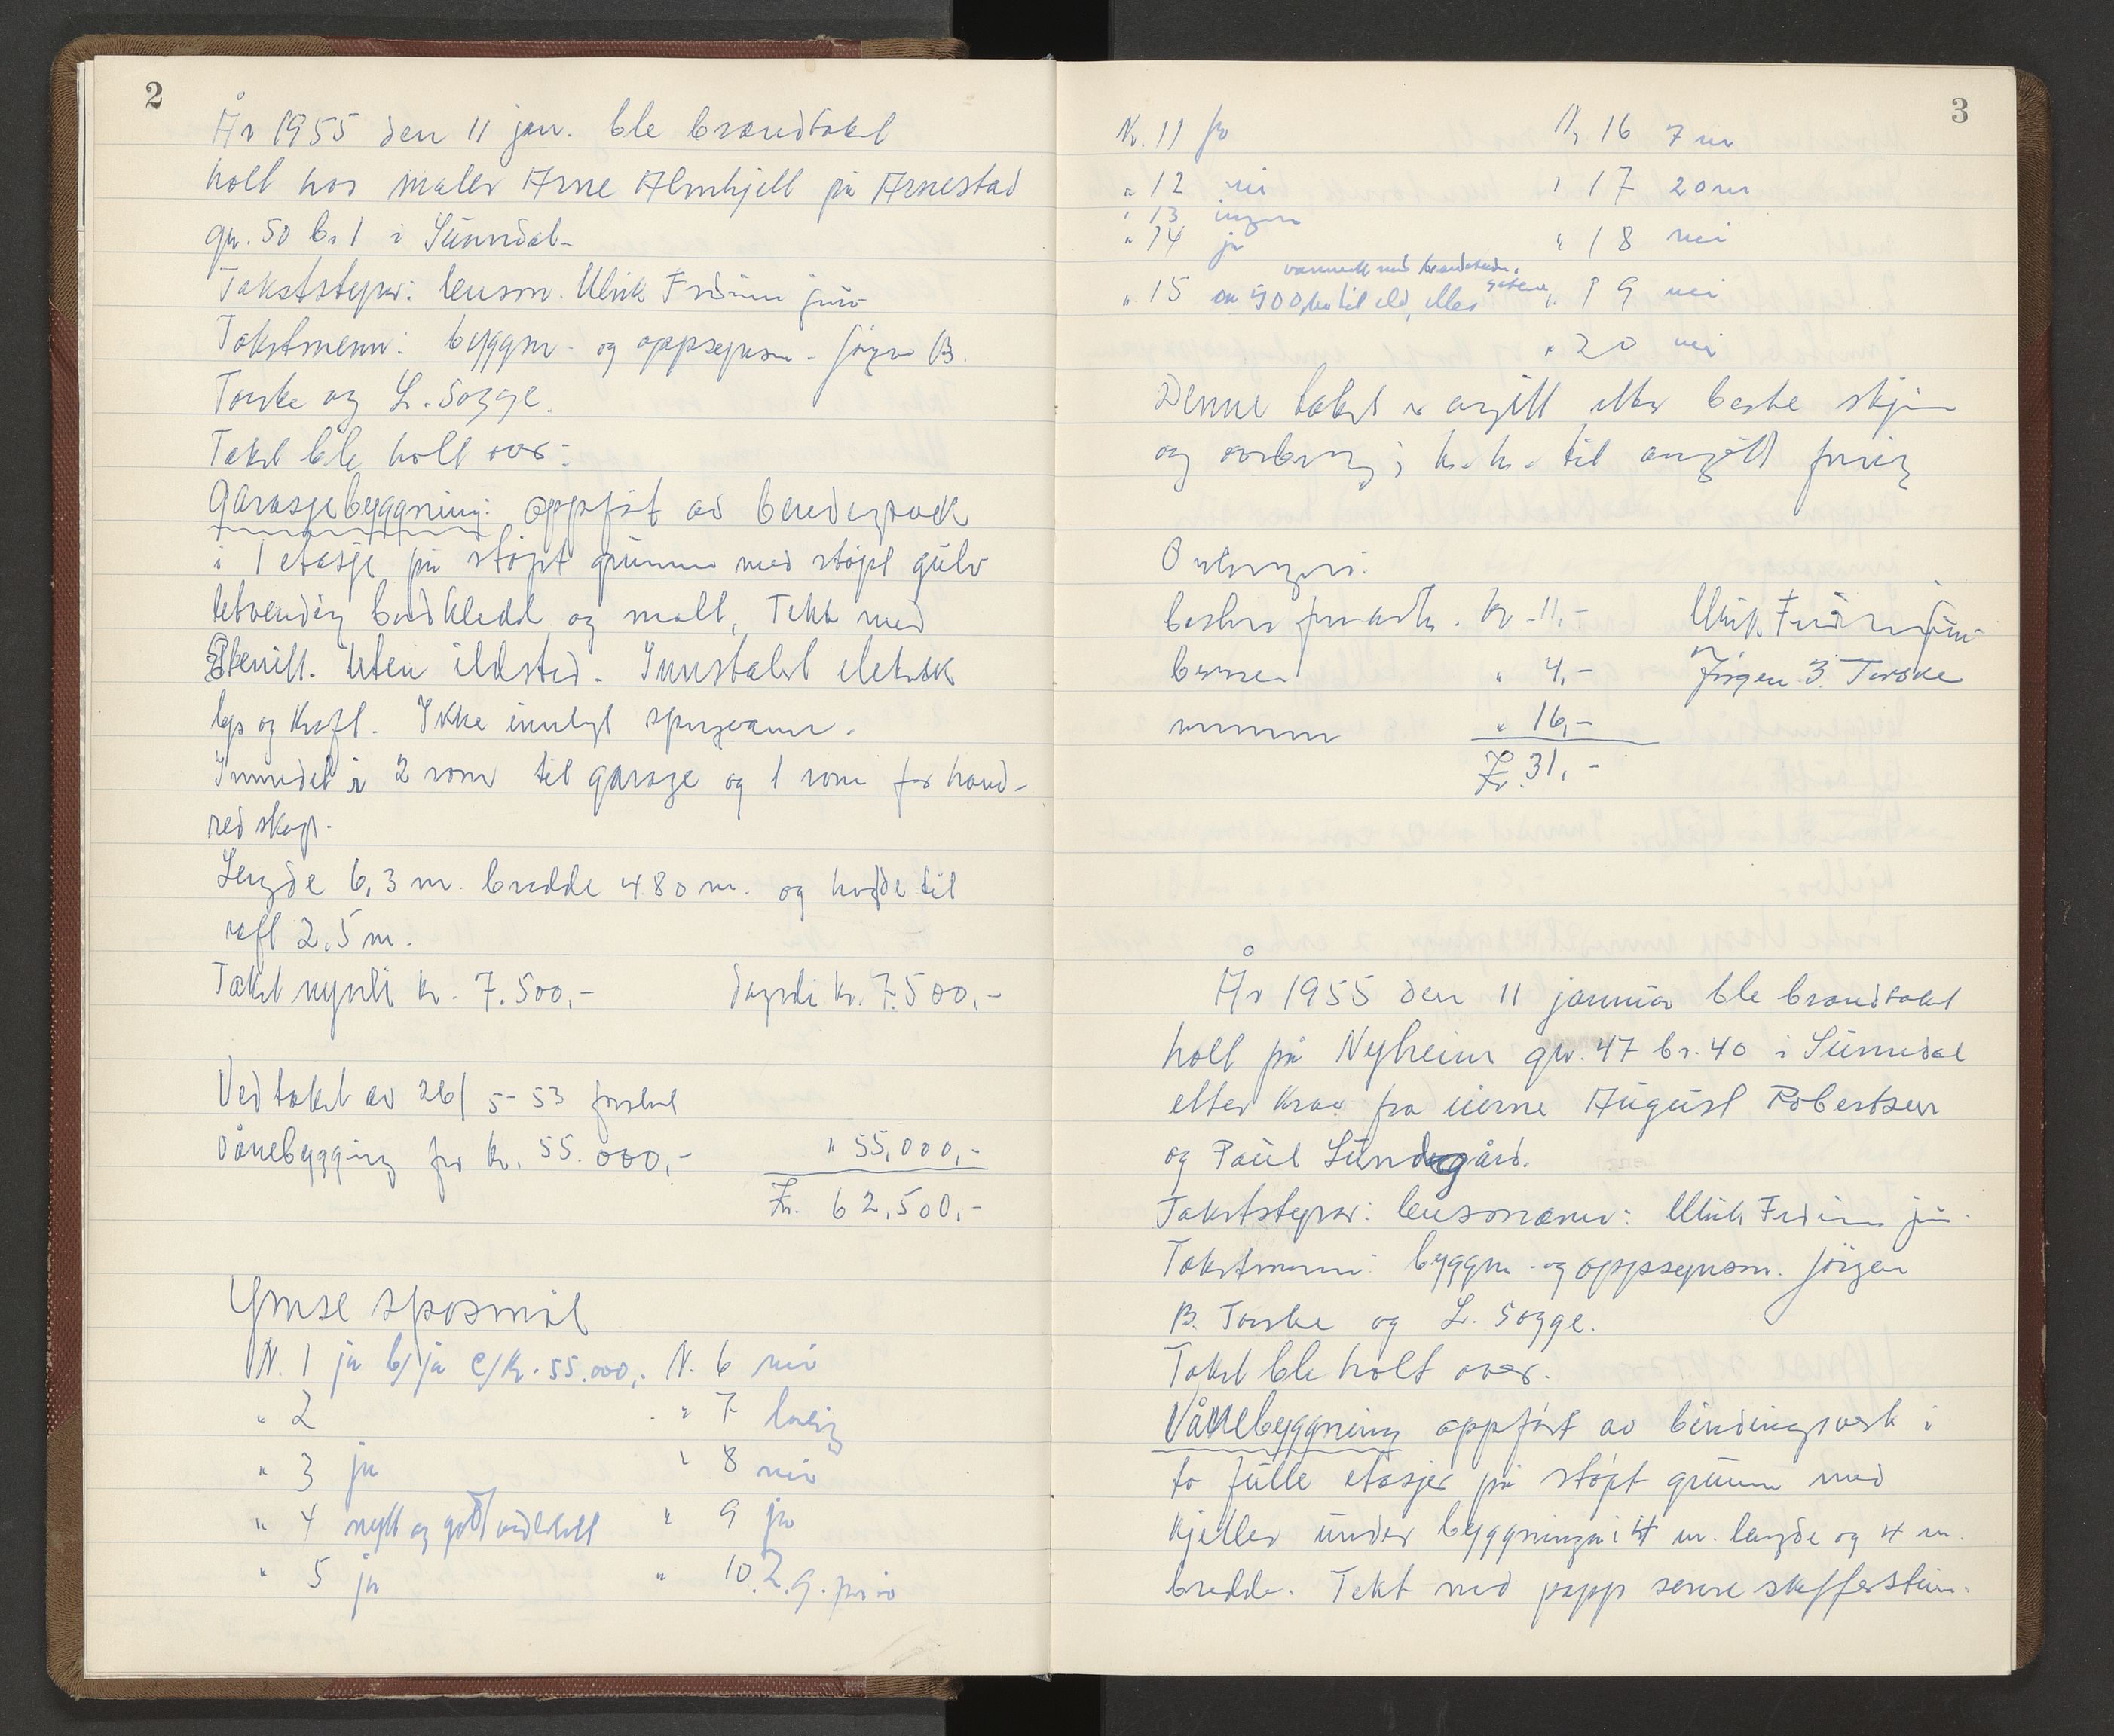 2
År 1955 den 11 jan. ble brandtakst
holt hos maler Arne Almskjell på Arnestad
gn. 50 br. 1 i Sunndal.
Takststyrar: lensm. Ulrik Fridrum jun.
Takstmenn: byggm. og oppsynsm. Jörgen B.
Torske og L. Sogge.
Takst ble holt over:
Garasjebyggning: oppført av bindingsverk
i 1 etasje på støpt grunn med støpt gulv
utvendig bordkledd og malt, Tekt med
Skevill. Uten ildsted. Innstalert elektrisk
lys og kraft. Ikke innlagt springvann.
Innredet i 2 rom til garage og 1 rom for hand-
redskap.
Lengde 6,3 m. bredde 480 m. og høgde til
raft 2,5 m.
Takst nyverdi kr. 7.500,- Dagverdi kr. 7.500,-
Ved takst av 26/5-53 forskjell
vånebygging for kr. 55.000,- " 55,000,-
Kr. 62,500,-
Ymse spørsmål
Nr. 1 ja b/ja c/kr. 55.000,- Nr. 6 nei
" 2 " 7 lovlig
" 3 ja " 8 nei
" 4 nytt og godt vedlikeholdt " 9 ja
" 5 ja " 10. 2. g. pr. år
3
Nr. 11 ja Nr. 16 7 m
" 12 nei " 17 20 m
" 13 ingen
" 14 ja " 18 nei
" 15 om 500 m til elv, eller " 19 nei
" 20 nei
Denne takst er avgitt etter beste skjønn
og overbevisning
Omkostninger:
kr. 11,- Ulrik Fridrum jun.
" 4,- Jörgen B. Torske
" 16,-
Kr. 31,-
År 1955 den 11 januar ble brandtakst
holt på Nyheim gn. 47 br. 40 i Sunndal
etter krav fra eierne August Robertsen
og Paul Sundegård.
Takststyrar: lensmann: Ulrik Fridrum jun.
Takstmenn: byggm. og oppsynsm. Jörgen
B. Torske og L. Sogge.
Takst ble holt over.
Vånebyggning oppført av bindingsverk i
to fulle etasjer på støpt grunn med
kjeller under byggningen i 4 m. lengde og 4 m.
bredde. Tekt med papp senere skifferstein.